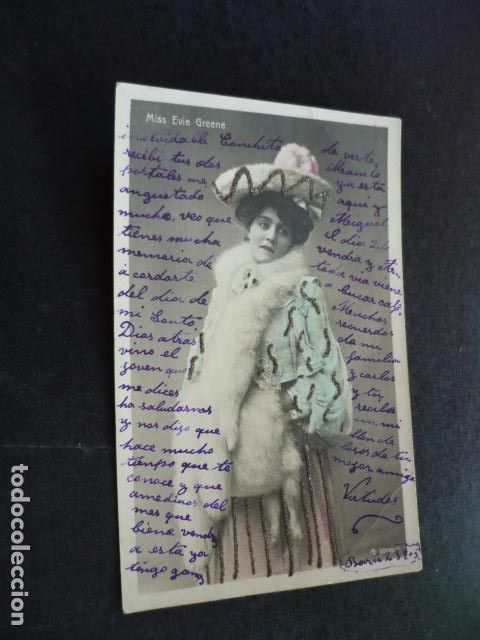 Miss Evie Greene
inolvidable Conchita
recibi tus dos
postales me
angustado
mucho, veo que
tienes mucha
memoria de
a cordarte
del dia de
mi Santo,
Dias atras
vino el
joven que
me dices
ha saludarnos
y nos dijo que
hace mucho
tiempo que te
conoce y que
amediaos del
mes que
biene vendra
a esta ya
tengo ganas
de verte,
Manelo
ya esta
aqui y
Miguel
el dia 2
vendra y
toda via viene
a bucar
Muchos
recuerdos
de mi
familia
y carlos
y tu
recibe
un mi
llon de
besos de tu
mejor amiga
Virtudes
todocoleccion